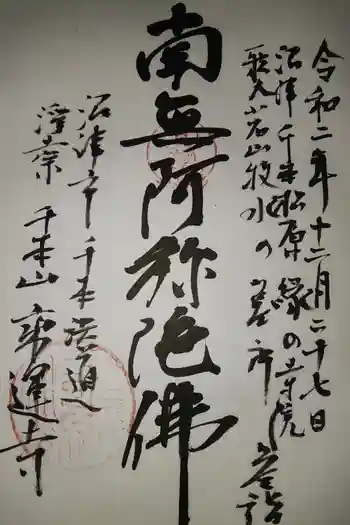 令和二年十二月二十七日
沼津千本松原 縁の寺院 参詣
歌人 若山牧水の墓所
南無阿弥陀佛
沼津市 千本港道
浄宗 千本山 乗運寺